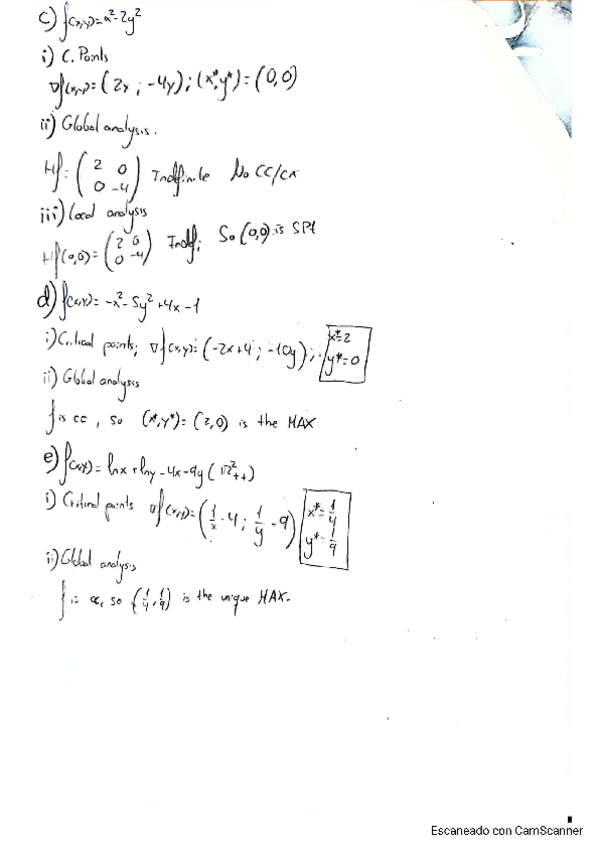 c) f(x,y)=x²-2y²
i) C. Points
∇f(x,y)=(2x ; -4y) ; (x*,y*)=(0,0)
ii) Global analysis.
Hf=(2 0 / 0 -4) Indefinite No CC/CX
iii) Local analysis
Hf(0,0)=(2 0 / 0 -4) Indf; So (0,0) is SPt
d) f(x,y)=-x²-5y²+4x-1
i) Critical points; ∇f(x,y)=(-2x+4 ; -10y) ; x*=2 y*=0
ii) Global analysis
f is cc, so (x*,y*)=(2,0) is the MAX
e) f(x,y)=lnx+lny-4x-9y (ℝ²++)
i) Critical points ∇f(x,y)=(1/x-4 ; 1/y-9) x*=1/4 y*=1/9
ii) Global analysis
f is cc, so (1/4,1/9) is the unique MAX.
Escaneado con CamScanner